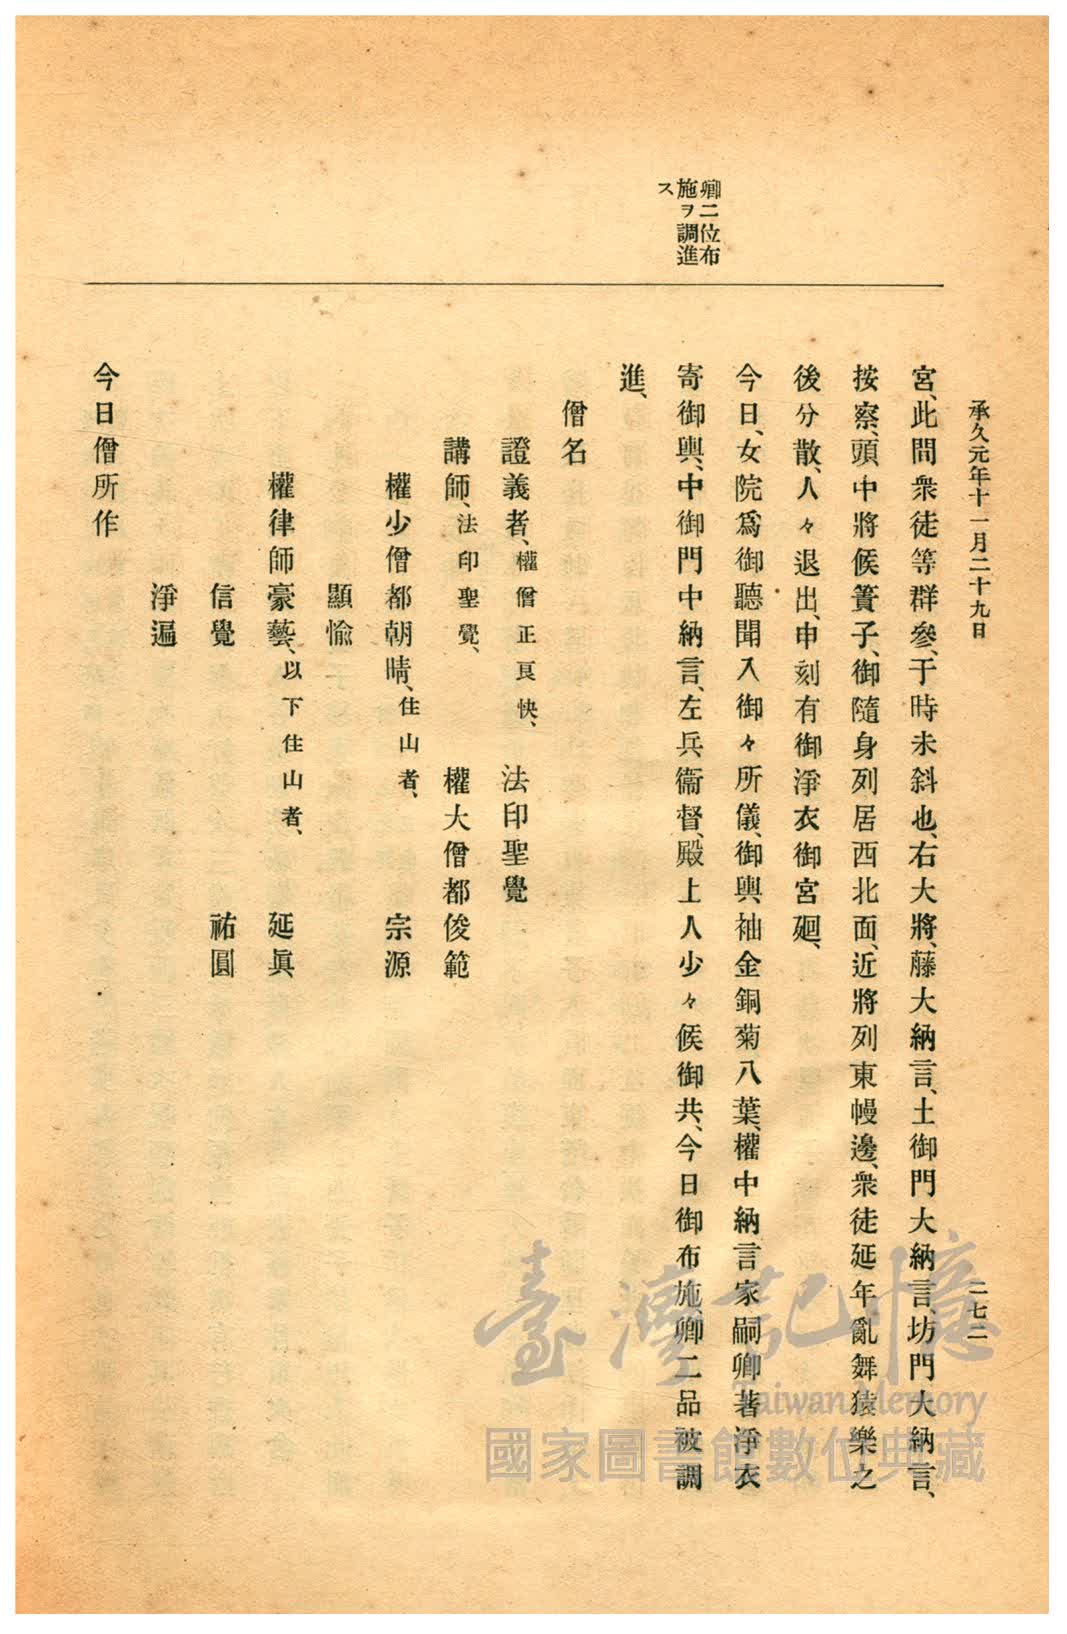 承久元年十一月二十九日
二七二
卿二位布
施ヲ調進
ス
宮、此間衆徒等群參、于時未斜也、右大將、藤大納言、土御門大納言、坊門大納言、
按察、頭中將候簀子、御隨身列居西北面、近將列東幔邊、衆徒延年亂舞猿樂之
後分散、人々退出、申刻有御淨衣御宮廻、
今日、女院爲御聽聞入御々所儀、御輿、袖金銅菊八葉、權中納言家嗣卿著淨衣
寄御輿、中御門中納言、左兵衞督、殿上人少々候御共、今日御布施、卿二品被調
進、
僧名
證義者、權僧正良快、　法印聖覺
講師、法印聖覺、　權大僧都俊範
權少僧都朝晴、住山者、　宗源
顯愉
權律師豪藝、以下住山者、　延眞
信覺　祐圓
淨遍
今日僧所作
臺灣記憶
Taiwan Memory
國家圖書館數位典藏